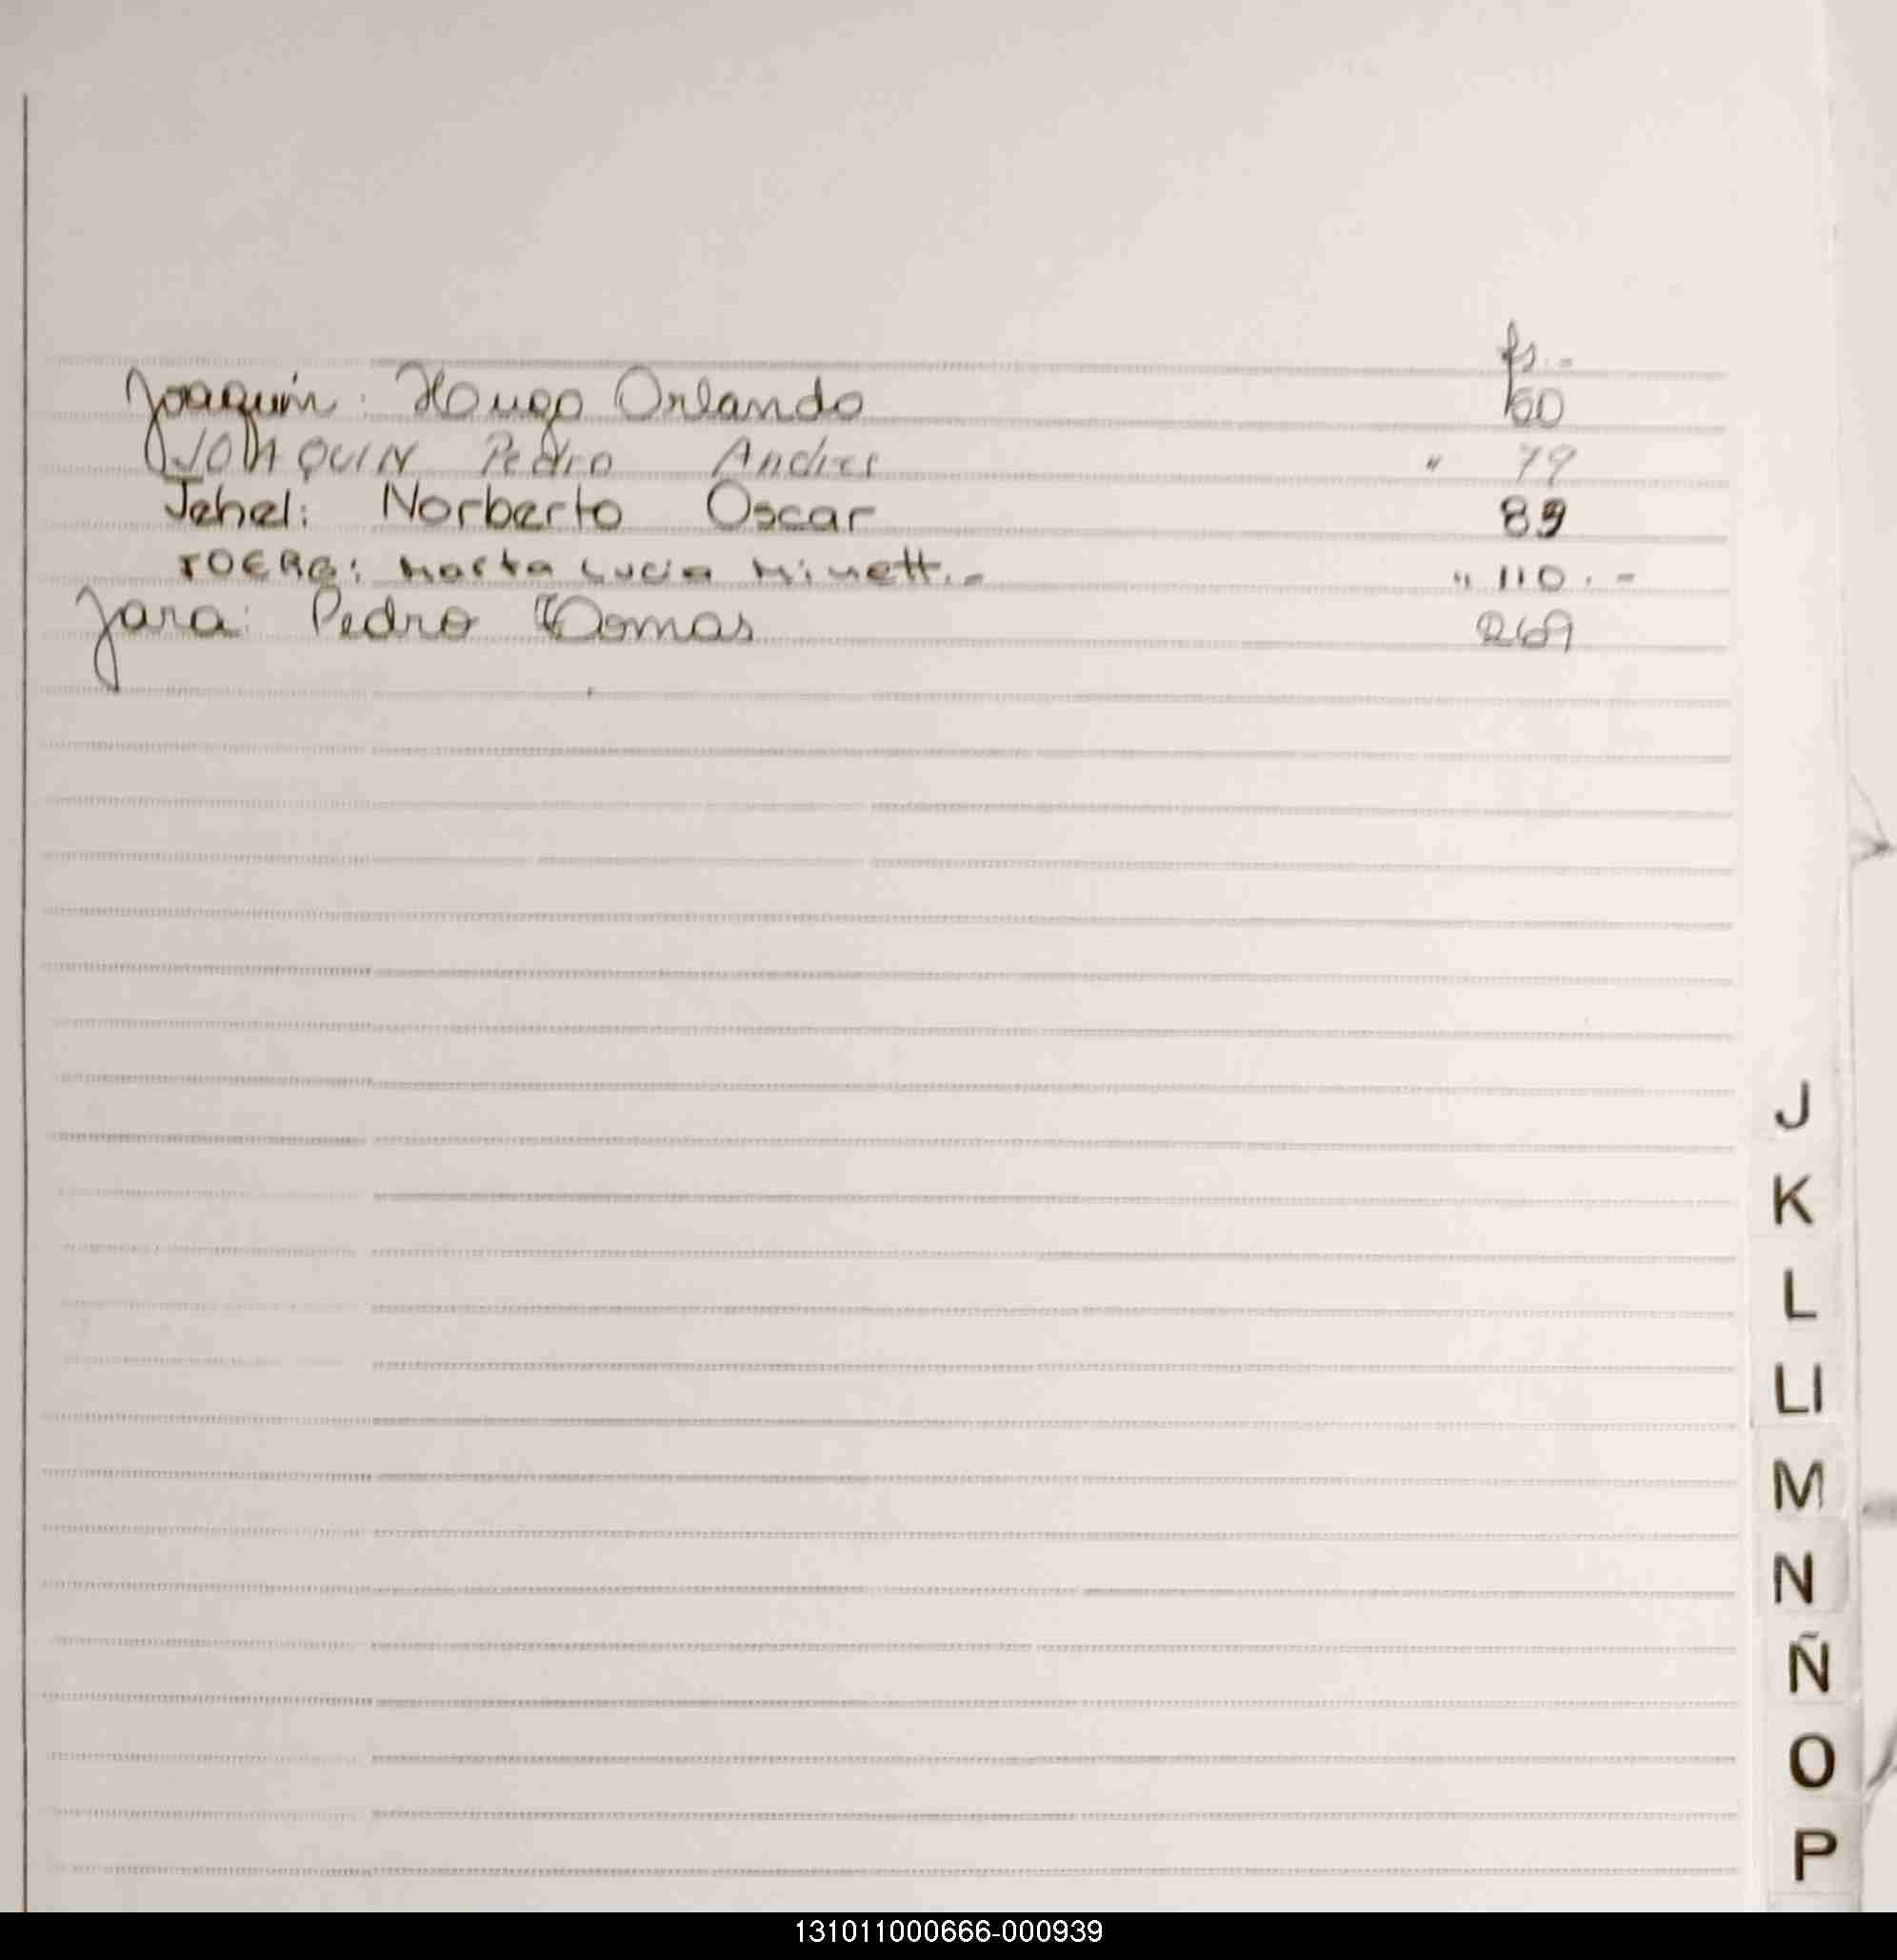 fs.-
Joaquín: Hougo Orlando 60
JOAQUIN Pedro Andres " 79
Jehel: Norberto Oscar 89
JOERG: Marta Lucia Minett.- " 110.-
Jara: Pedro Tomas 269
J
K
L
Ll
M
N
Ñ
O
P
131011000666-000939